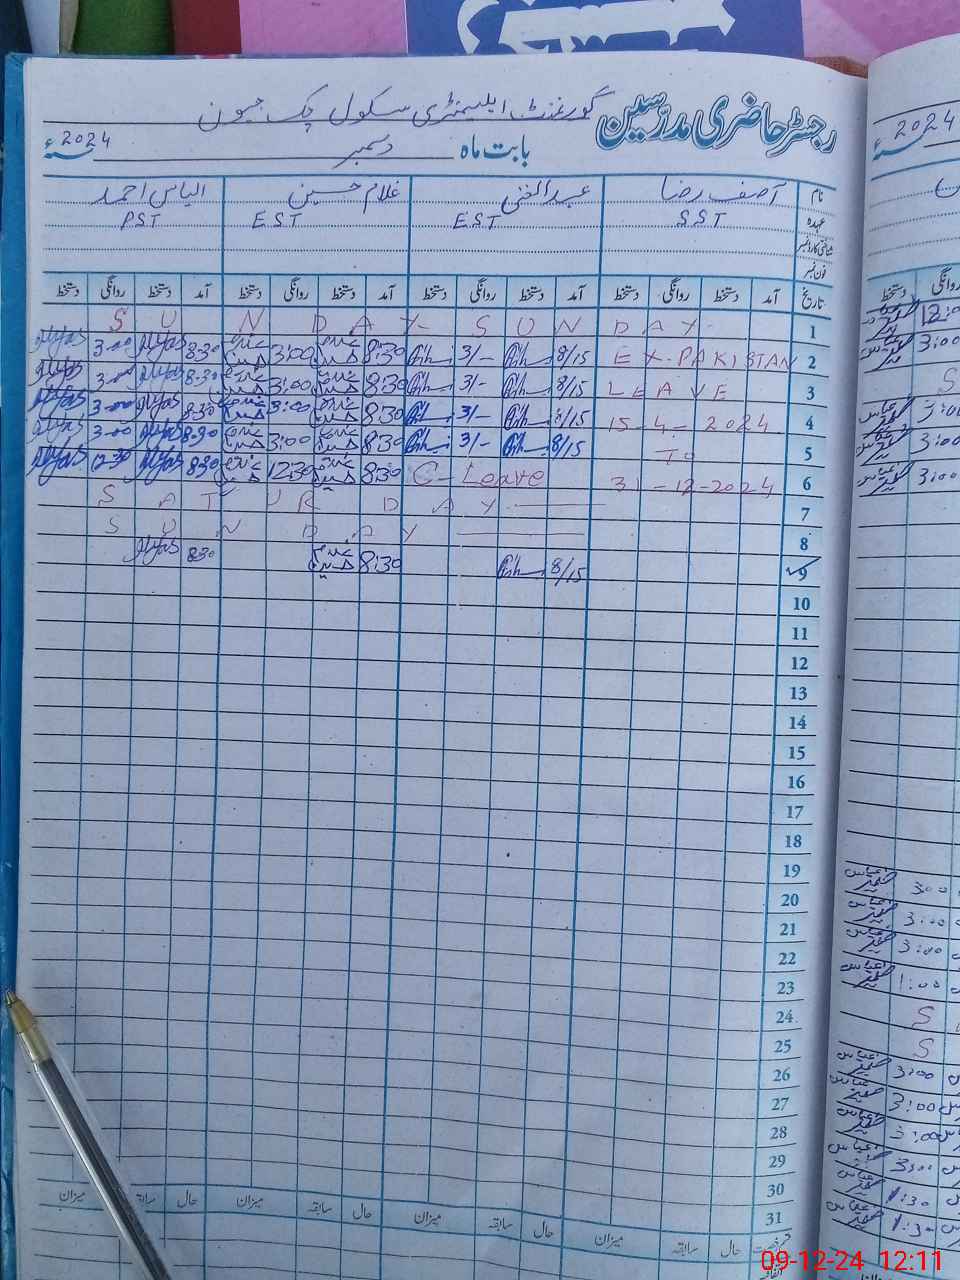 رجسٹر حاضری مدرسین گورنمنٹ ایلیمنٹری سکول چک جیون
بابت ماہ دسمبر 2024ء
2024ء
نام آصف رضا عبدالغنی غلام حسین الیاس احمد
عہدہ SST EST EST PST
شناختی کارڈ نمبر
فون نمبر
تاریخ آمد دستخط روانگی دستخط آمد دستخط روانگی دستخط آمد دستخط روانگی دستخط آمد دستخط روانگی دستخط
روانگی دستخط
1 SUNDAY - SUNDAY
2 EX-PAKISTAN 8/15 3/- 8:30 غلام حسین 3:00 غلام حسین 8:30 Ilyas 3:00 Ilyas
3 LEAVE 8/15 3/- 8:30 غلام حسین 3:00 غلام حسین 8:30 Ilyas 3:00 Ilyas
4 15-4-2024 8/15 3/- 8:30 غلام حسین 3:00 غلام حسین 8:30 Ilyas 3:00 Ilyas
5 To 8/15 3/- 8:30 غلام حسین 3:00 غلام حسین 8:30 Ilyas 3:00 Ilyas
6 31-12-2024 C-Leave 8:30 غلام حسین 12:30 غلام حسین 8:30 Ilyas Ilyas
7 SATURDAY
8 SUNDAY
9 8/15 8:30 غلام حسین 8:30 Ilyas
10
11
12
13
14
15
16
17
18
19
20
21
22
23
24
25
26
27
28
29
30
31
حال سابقہ میزان حال سابقہ میزان حال سابقہ میزان حال سابقہ میزان
12:0
3:00
S
3:00
3:00
3:00
3:00
3:00
3:00
1:00
S
S
3:00
3:00
3:00
3:00
1:30
1:30
09-12-24 12:11